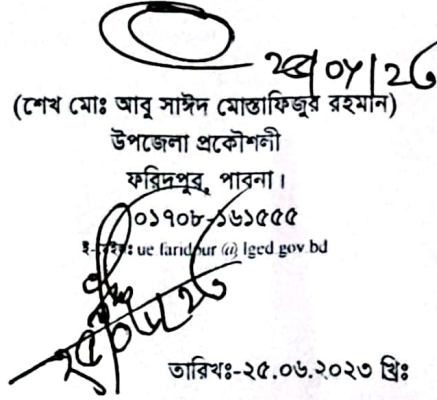 (শেখ মোঃ আবু সাঈদ মোস্তাফিজুর রহমান)
উপজেলা প্রকৌশলী
ফরিদপুর, পাবনা।
০১৭০৮-১৬১৫৫৫
ue.faridpur@lged.gov.bd
তারিখঃ-২৫.০৬.২০২৩ খ্রিঃ